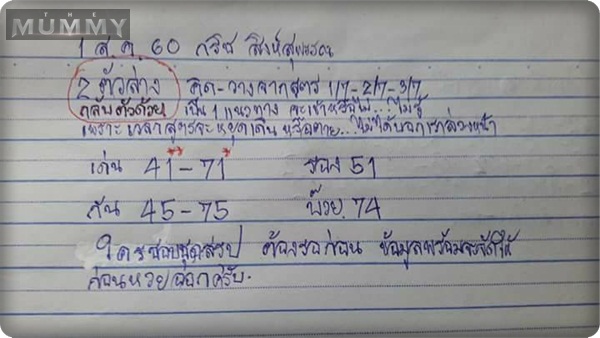 THE
MUMMY
1 ส.ค. 60 กริช สิงห์สุพรรณ
2 ตัวล่าง คิด-วางจากสูตร 1/7-2/7-3/7
กลับตัวด้วย เป็น 1 แนวทาง จะเข้าหรือไม่...ไม่รู้
เพราะเวลาสูตรจะหยุดเดิน หรือตาย...ไม่ได้บอกเราล่วงหน้า
เด่น 41-71 รอง 51
กัน 45-75 ป๋วย 74
ใครชอบชุดสรุป ต้องรอก่อน ข้อมูลพร้อมจะจัดให้
ก่อนหวยออกครับ.